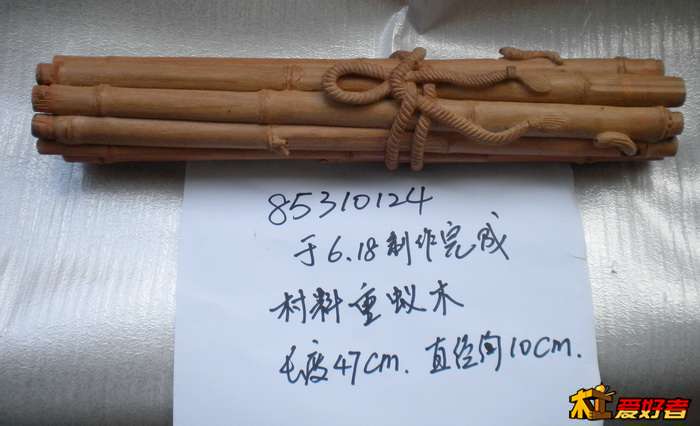 85310124
于6.18制作完成
材料重蚁木
长度47cm. 直径约10cm.
木工爱好者